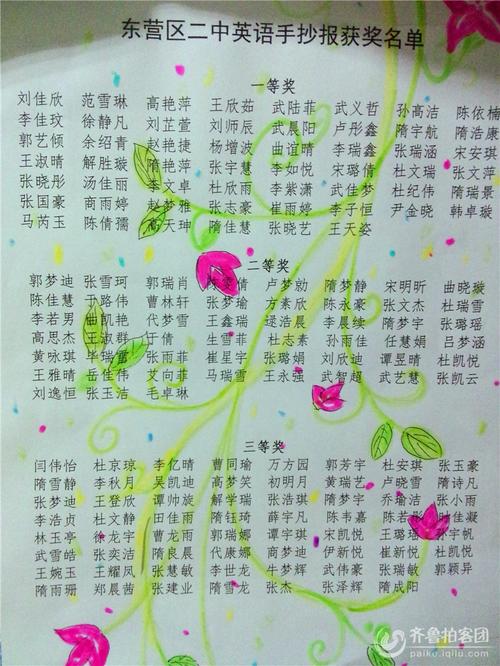 东营区二中英语手抄报获奖名单
一等奖
刘佳欣 范雪琳 高艳萍 王欣茹 武陆菲 武义哲 孙高洁 陈依楠
李佳玟 徐静凡 刘芷萱 刘师辰 武晨阳 卢彤鑫 隋宇航 隋浩康
郭艺倾 余绍青 赵艳捷 杨增波 曲谊晴 李瑞鑫 张瑞涵 宋安琪
王淑晴 解胜璇 隋艳萍 张宇慧 李如悦 宋璐倩 杜文瑞 张文萍
张晓彤 汤佳丽 李文卓 杜欣雨 李紫潇 武佳梦 杜纪伟 隋瑞景
张国豪 商雨婷 赵梦雅 张志豪 崔雨婷 李子恒 尹金晓 韩卓璇
马芮玉 陈倩霈 高天珅 隋佳慧 张晓艺 王天姿
二等奖
郭梦迪 张雪珂 郭瑞肖 倩 卢梦勍 隋梦静 宋明昕 曲晓璇
陈佳慧 于路伟 曹林轩 张梦瑜 方素欣 陈永豪 张文杰 杜瑞雪
李若男 曲凯艳 代梦雪 王鑫瑞 逯浩晨 李晨续 隋梦宇 张璐瑶
高思杰 王淑群 倩 生雪菲 杜志素 孙雨佳 任慧娟 吕梦涵
黄咏琪 毕瑞 张雨菲 崔星宇 张璐娟 刘欣迪 谭昱晴 杜凯悦
王雅晴 岳佳伟 艾向菲 马瑞雪 王永强 武智超 武艺慧 张凯云
刘逸恒 张玉洁 毛卓琳
三等奖
闫伟怡 杜京琼 李亿晴 曹同瑜 万方园 郭芳宇 杜安琪 张玉豪
隋雪静 李秋月 吴凯迪 高梦笑 初明月 黄瑞艺 卢晓雪 隋诗凡
张梦迪 王登欣 谭帅旋 解学瑞 张浩琪 隋梦宇 乔瑜洁 张小雨
李浩贞 杜文静 田佳雨 隋钰琦 薛宇凡 陈韦嘉 陈若 时佳凝
林玉亭 徐龙宇 曹龙雨 郭瑞娜 谭宇琪 宋凯悦 王璐瑶 张宇帆
武雪皓 张奕洁 隋良晨 代康娜 商梦迪 伊新悦 崔新悦 杜凯悦
王婉玉 王耀凤 张慧敏 李世龙 牛梦辉 武伟豪 张瑞敏 郭颖异
隋雨珊 郑晨茜 张建业 隋雪龙 张杰 张泽辉 隋成阳
齐鲁拍客团
paike.iqilu.com